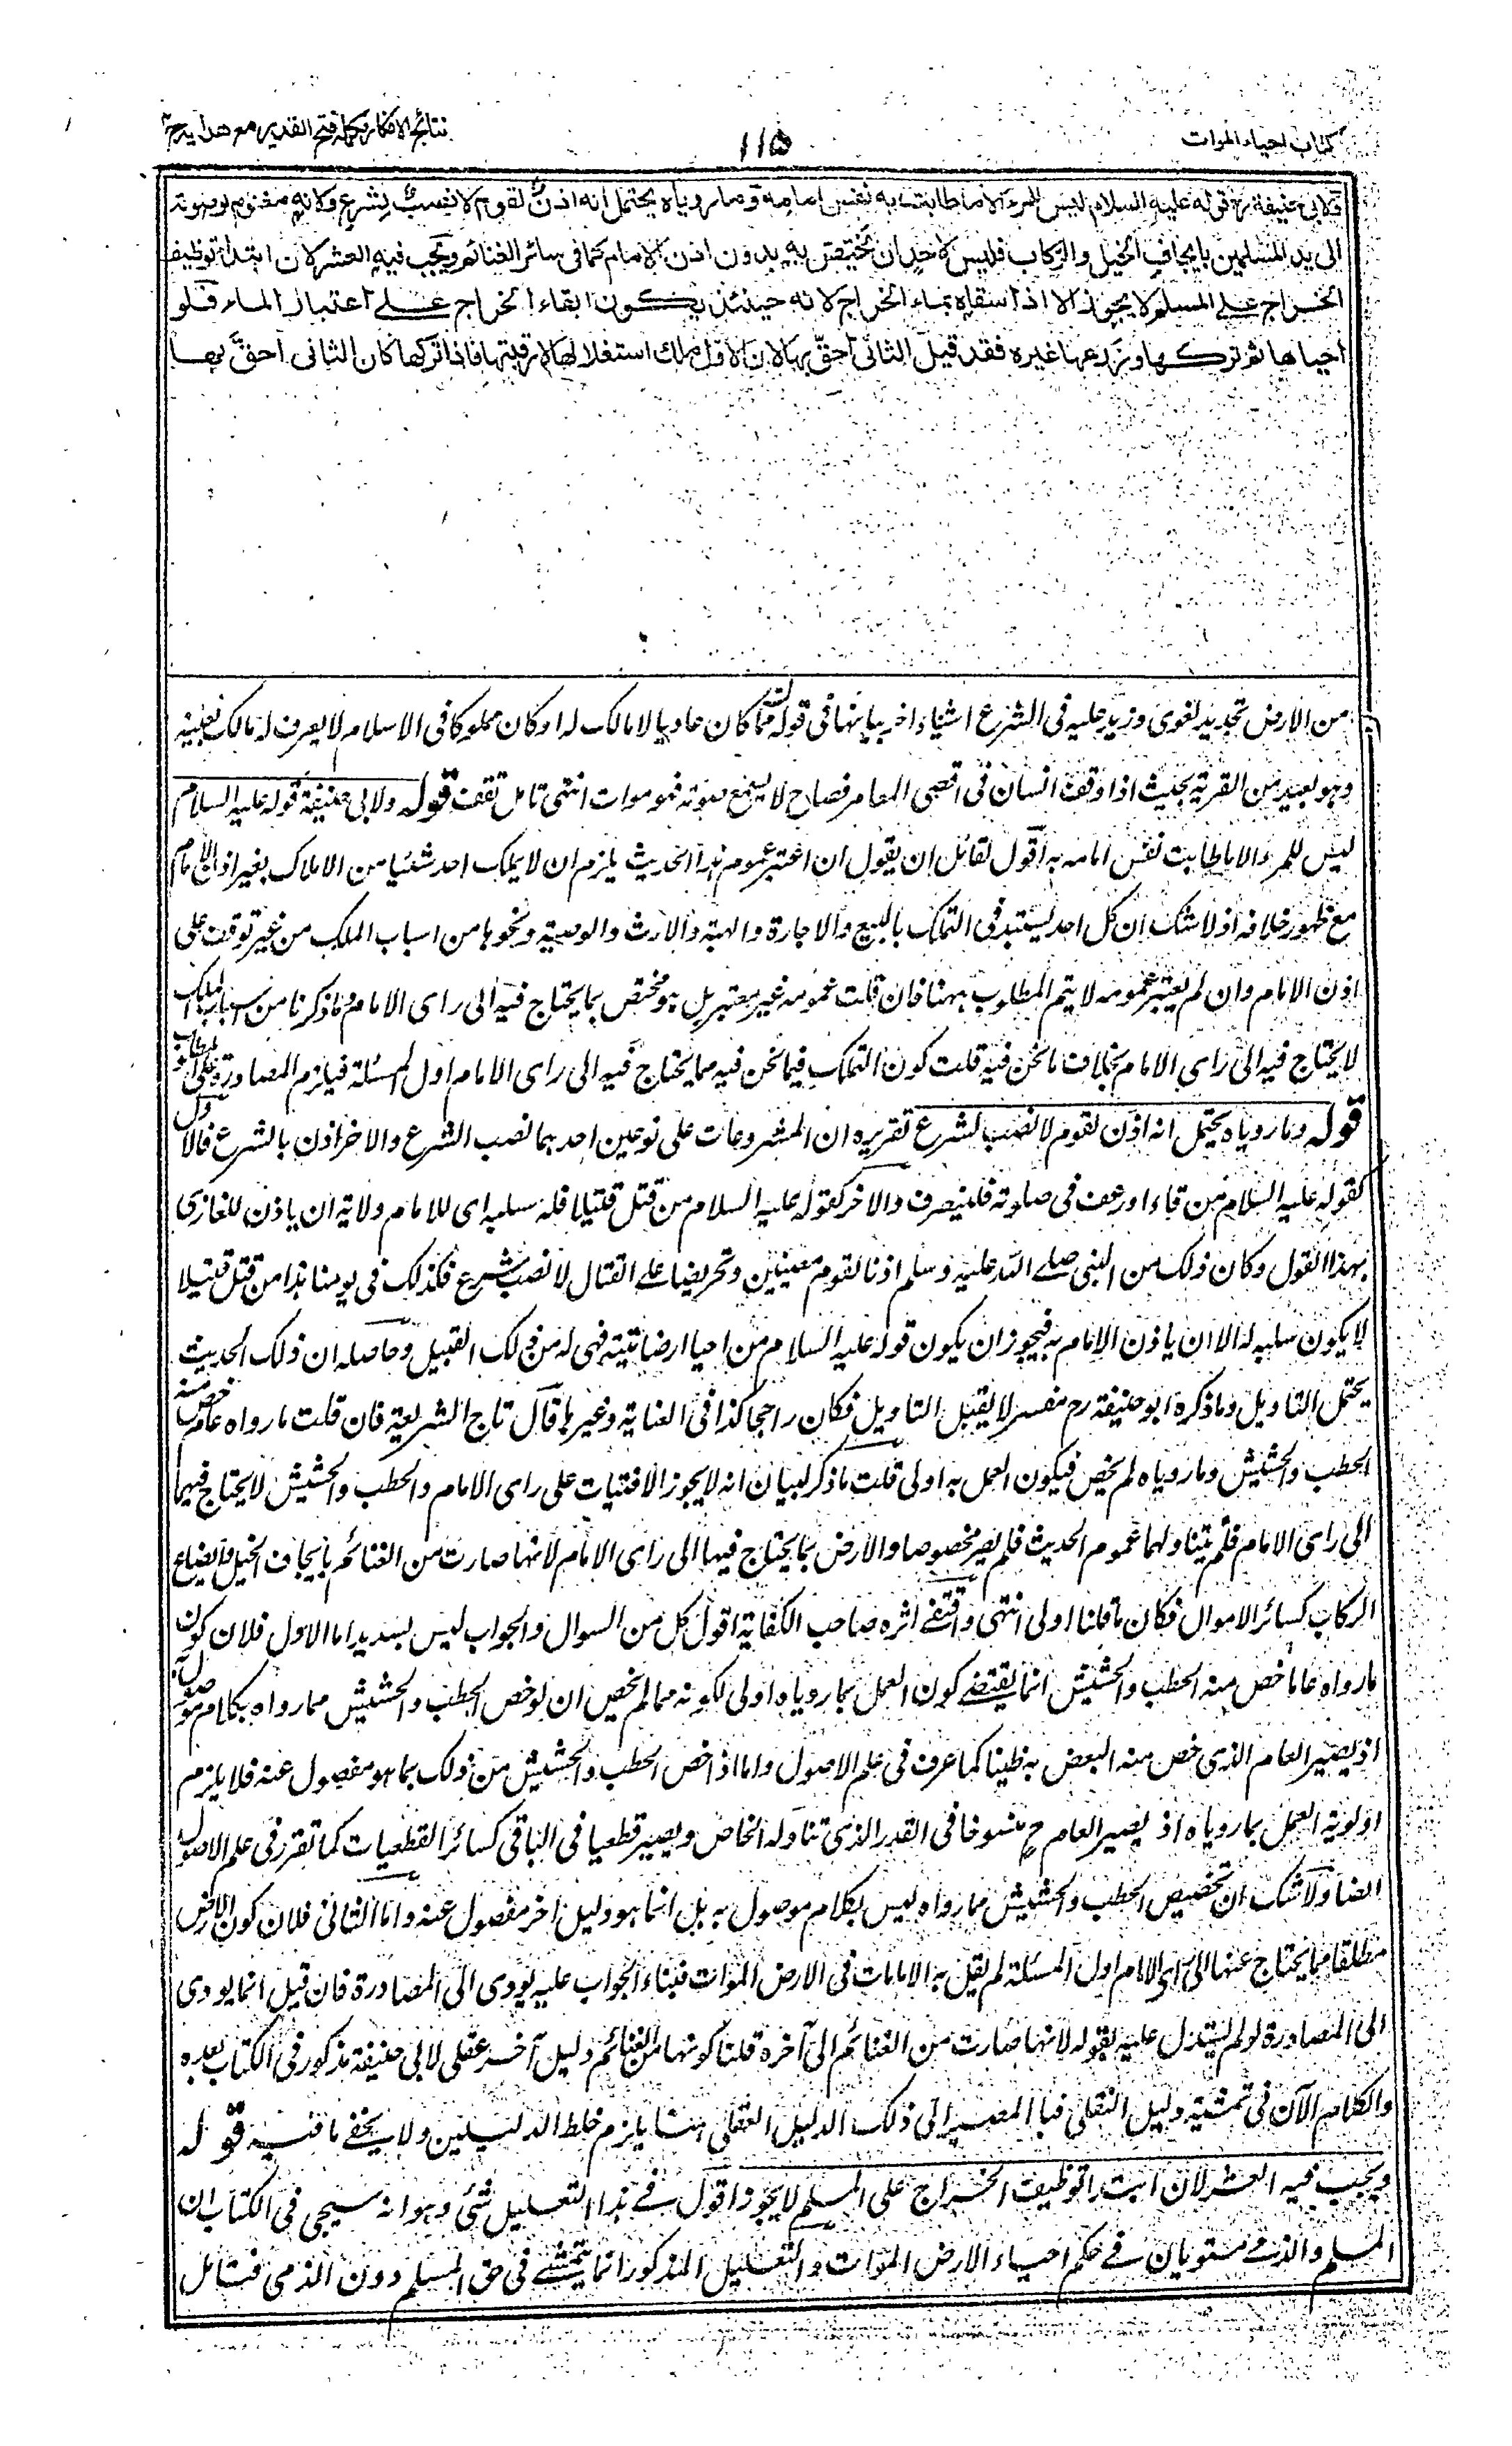 كتاب احياء الموات
١١٥
نتائج الافكار تكملة فتح القدير مع هداية ج
ولابي حنيفة رح قوله عليه السلام ليس للمرء الا ما طابت به نفس امامه وما روياه يحتمل انه اذن لقوم لا نصب لشرع ولانه مغنوم لوصوله
الى يد المسلمين بايجاف الخيل والركاب فليس لاحد ان يختص به بدون اذن الامام كما في سائر الغنائم ويجب فيه العشر لان ابتداء توظيف
الخراج على المسلم لا يجوز الا اذا سقاه بماء الخراج لانه حينئذ يكون ابقاء الخراج على اعتبار الماء فلو
احياها ثم تركها وزرعها غيره فقد قيل الثاني احق بها لان الاول ملك استغلالها لا رقبتها فاذا تركها كان الثاني احق بها
من الارض تحديد لغوي وزيد عليه في الشرع اشياء اخر بيانها في قوله فما كان عاديا لا مالك له او كان مملوكا في الاسلام لا يعرف له مالك بعينه
وهو بعيد من القرية بحيث اذا وقف انسان في اقصى العامر فصاح لا يسمع صوته فهو موات انتهى تامل تقف قوله ولابي حنيفة قوله عليه السلام
ليس للمرء الا ما طابت نفس امامه به اقول لقائل ان يقول ان اعتبر عموم هذا الحديث يلزم ان لا يملك احد شئيا من الاملاك بغير اذن الامام
مع ظهور خلافه اذ لا شك ان كل احد يستبد في التملك بالبيع والاجارة والهبة والارث والوصية ونحوها من اسباب الملك من غير توقف على
اذن الامام وان لم يعتبر عمومه لا يتم المطلوب ههنا فان قلت عمومه غير معتبر بل هو مختص بما يحتاج فيه الى راى الامام وما ذكرنا من اسباب الملك
لا يحتاج فيه الى راى الامام بخلاف ما نحن فيه قلت كون التملك فيما نحن فيه مما يحتاج فيه الى راى الامام اول المسئلة فيلزم المصادرة على المطلوب
قوله وما روياه يحتمل انه اذن لقوم لا نصب لشرع تقريره ان المشروعات على نوعين احدهما نصب الشرع والاخر اذن بالشرع فالاول
كقوله عليه السلام من قاء او رعف في صلوته فلينصرف والاخر كقوله عليه السلام من قتل قتيلا فله سلبه اى للامام ولاية ان ياذن للغازى
بهذا القول وكان ذلك من النبي صلے الله عليه وسلم اذنا لقوم معينين وتحريضا على القتال لا نصب شرع فكذلك في يومنا هذا من قتل قتيلا
لا يكون سلبه له الا ان ياذن الامام به فيجوز ان يكون قوله عليه السلام من احيا ارضا ميتة فهى له من ذلك القبيل وحاصله ان ذلك الحديث
يحتمل التاويل وما ذكره ابو حنيفة رح مفسر لا يقبل التاويل فكان راجحا كذا في العناية وغيرها قال تاج الشريعة فان قلت ما رواه عام خص منه
الحطب والحشيش وما روياه لم يخص فيكون العمل به اولى قلت ما ذكر لبيان انه لا يجوز الافتيات على راى الامام والحطب والحشيش لا يحتاج فيهما
الى راى الامام فلم يتناولهما عموم الحديث فلم يصر مخصوصا والارض مما يحتاج فيها الى راى الامام لانها صارت من الغنائم بايجاف الخيل وايضاع
الركاب كسائر الاموال فكان ما قلنا اولى انتهى واقتفے اثره صاحب الكفاية اقول كل من السوال والجواب ليس بسديد اما الاول فلان كون
ما رواه عاما خص منه الحطب والحشيش انما يقتضے كون العمل بما روياه اولى لكونه مما لم يخص ان لو خص الحطب والحشيش مما رواه بكلام موصول
اذ يصير العام الذى خص منه البعض به ظنيا كما عرف في علم الاصول واما اذا خص الحطب والحشيش من ذلك بما هو مفصول عنه فلا يلزم
اولوية العمل بما روياه اذ يصير العام ح منسوخا في القدر الذى تناوله الخاص ويصير قطعيا في الباقي كسائر القطعيات كما تقرر في علم الاصول
ايضا ولا شك ان تخصيص الحطب والحشيش مما رواه ليس بكلام موصول به بل انما هو دليل اخر مفصول عنه واما الثانى فلان كون الارض
مطلقا مما يحتاج عنها الى راى الامام اول المسئلة لم يقل به الامامان في الارض الموات فبناء الجواب عليه يودى الى المصادرة فان قيل انما يودى
الى المصادرة لو لم يستدل عليه بقوله لانها صارت من الغنائم الى آخره قلنا كونها من الغنائم دليل آخر عقلى لابى حنيفة مذكور في الكتاب بعده
والكلام الآن في تمشية دليل النقلى فبا المصير الى ذلك الدليل العقلى ههنا يلزم خلط الدليلين ولا يخفے ما فيه قوله
ويجب فيه العشر لان ابتداء توظيف الخراج على المسلم لا يجوز اقول فے هذا التعليل شئى وهو انه سيجى في الكتاب ان
المسلم والذمے مستويان فے حكم احياء الارض الموات والتعليل المذكور انما يتمشے في حق المسلم دون الذمى فتامل